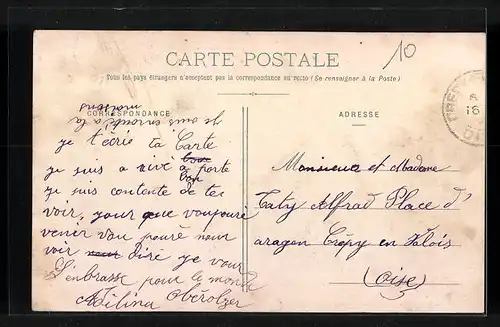 10
CARTE POSTALE
Tous les pays étrangers n'acceptent pas la correspondance au recto (Se renseigner à la Poste)
CORRESPONDANCE
ADRESSE
je suis à la
je t'écrie ta Carte
je suis a rivé a porte
bon
je suis contente de tes
voir, pour que
venir vou pouré nour
voir nour diré je vour
L'enbrasse pour le monde
Adilina Oberolzer
Monsieur et Madame
Taty Alfrad Place d'
aragon Crépy en Valois
(Oise)
CREP
16